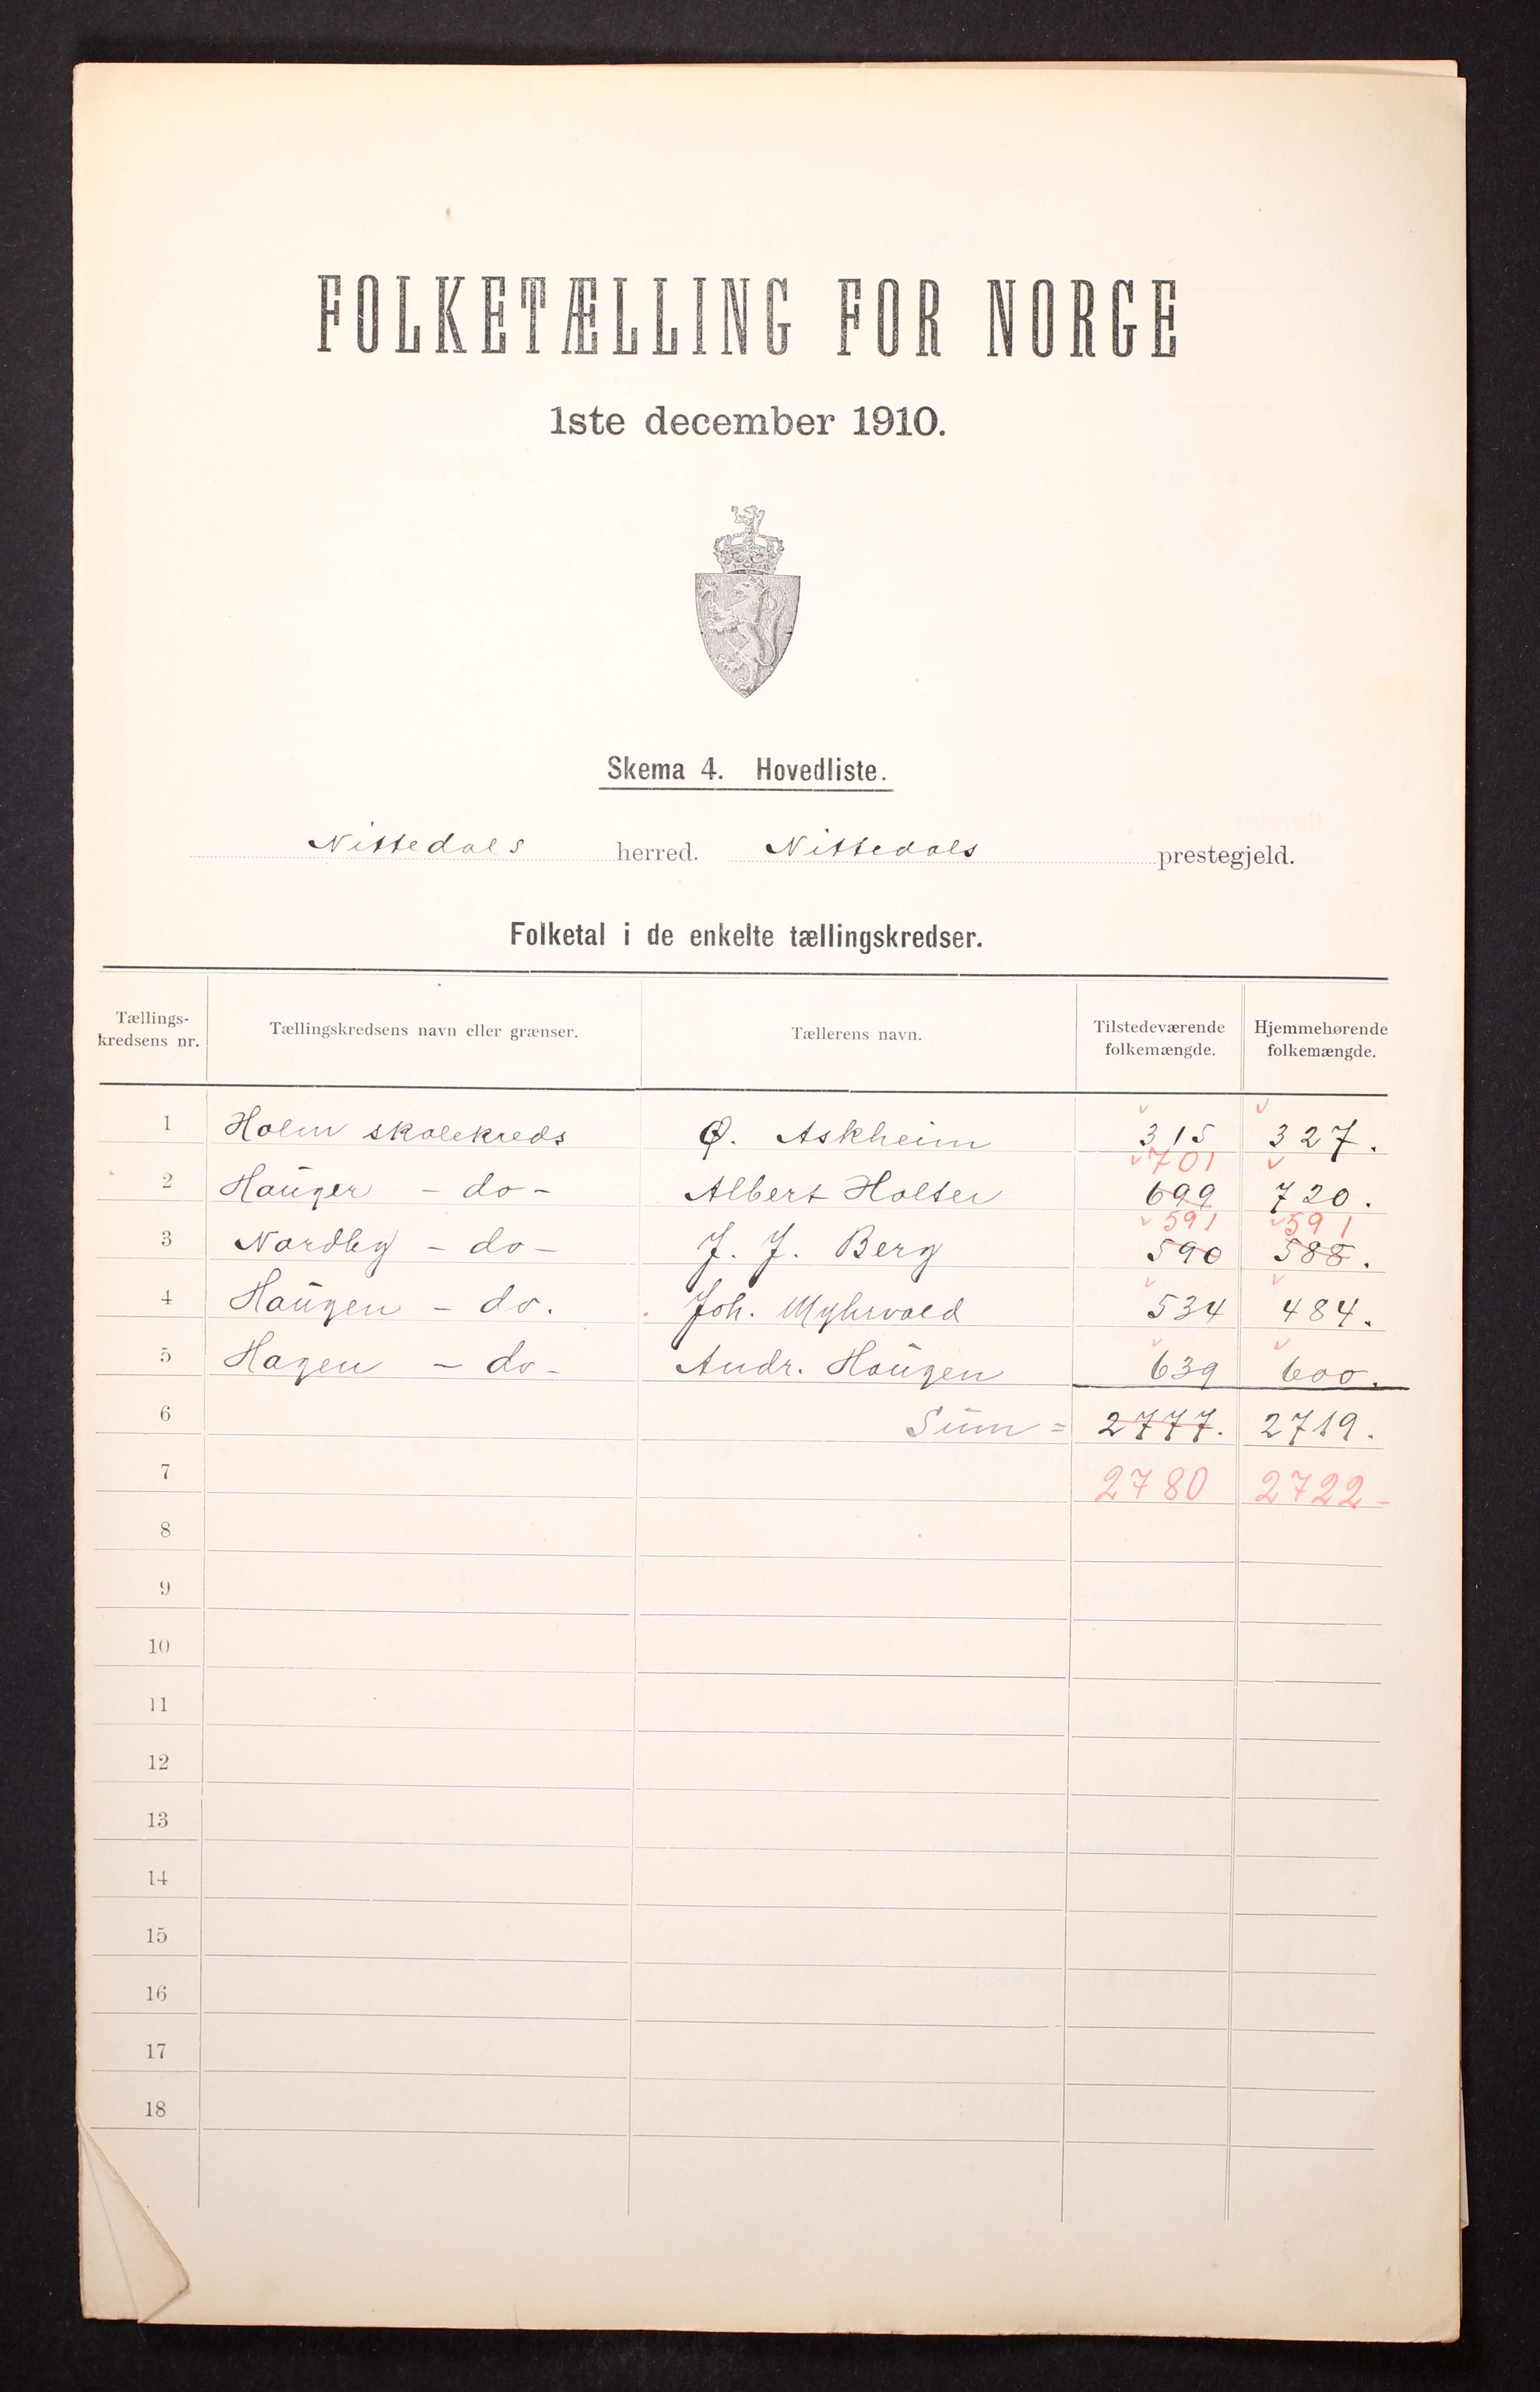 FOLKETÆLLING FOR NORGE
1ste december 1910.
Skema 4. Hovedliste.
Nittedals herred. Nittedals prestegjeld.
Folketal i de enkelte tællingskredser.
Tællings-kredsens nr. Tællingskredsens navn eller grænser. Tællerens navn. Tilstedeværende folkemængde. Hjemmehørende folkemængde.
1 Holm skolekreds O. Askheim 315 327.
701
2 Hauger - do - Albert Holter 699 720.
591 591
3 Nordby - do - J. J. Berg 590 588.
4 Haugen - do. Joh. Myhrvold 534 484.
5 Hagen - do - Andr. Haugen 639 600.
6 Sum = 2777. 2719.
7 2780 2722-
8
9
10
11
12
13
14
15
16
17
18